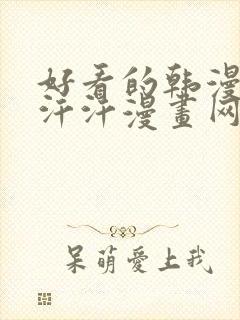 好看的韩漫
汗汗漫畫网
呆萌愛上我